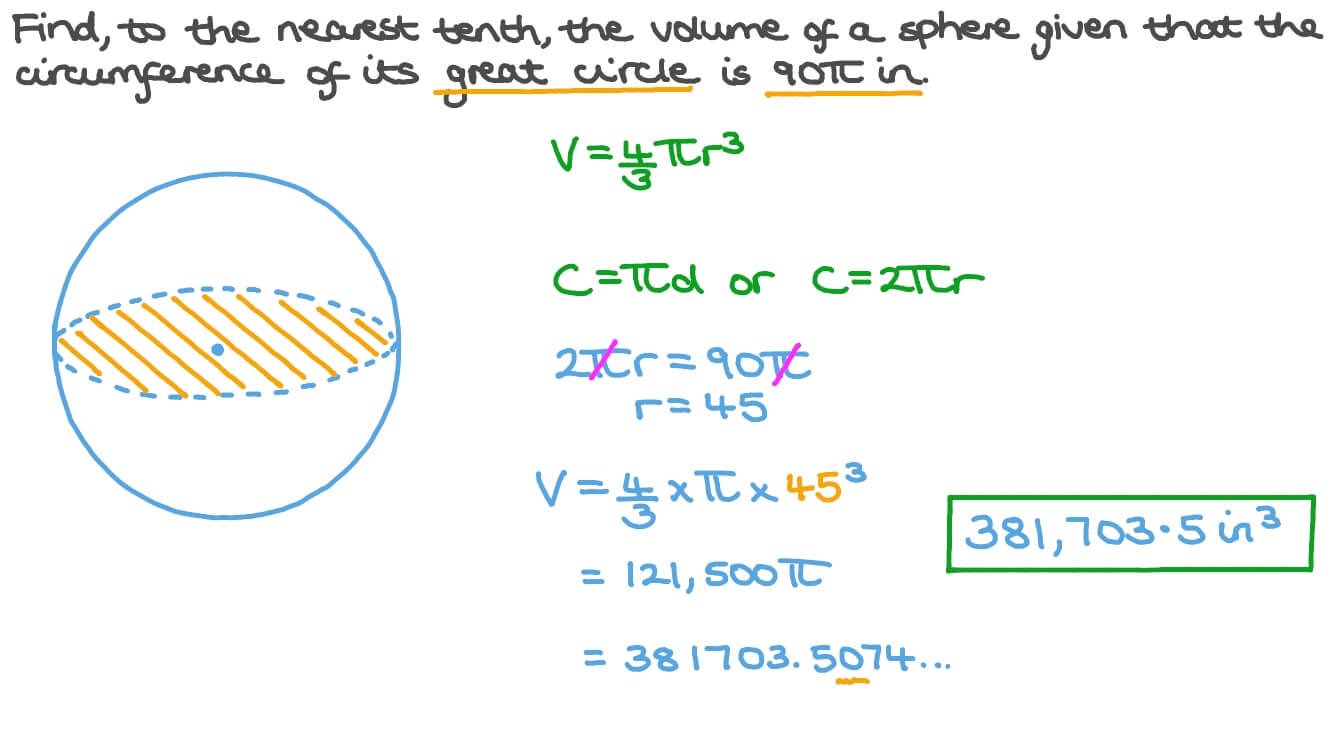 Find, to the nearest tenth, the volume of a sphere given that the
circumference of its great circle is 90π in.
V = 4/3 πr³
C = πd or C = 2πr
2πr = 90π
r = 45
V = 4/3 × π × 45³
= 121,500π
381,703·5 in³
= 381703.5074...